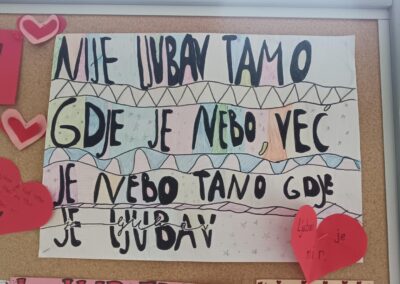 NIJE LJUBAV TAMO
GDJE JE NEBO, VEĆ
JE NEBO TAMO GDJE
JE LJUBAV
je